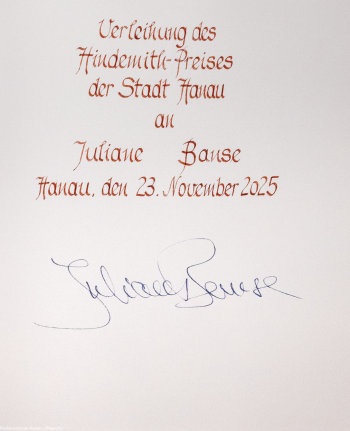 Verleihung des
Hindemith-Preises
der Stadt Hanau
an
Juliane Banse
Hanau, den 23. November 2025
Juliane Banse